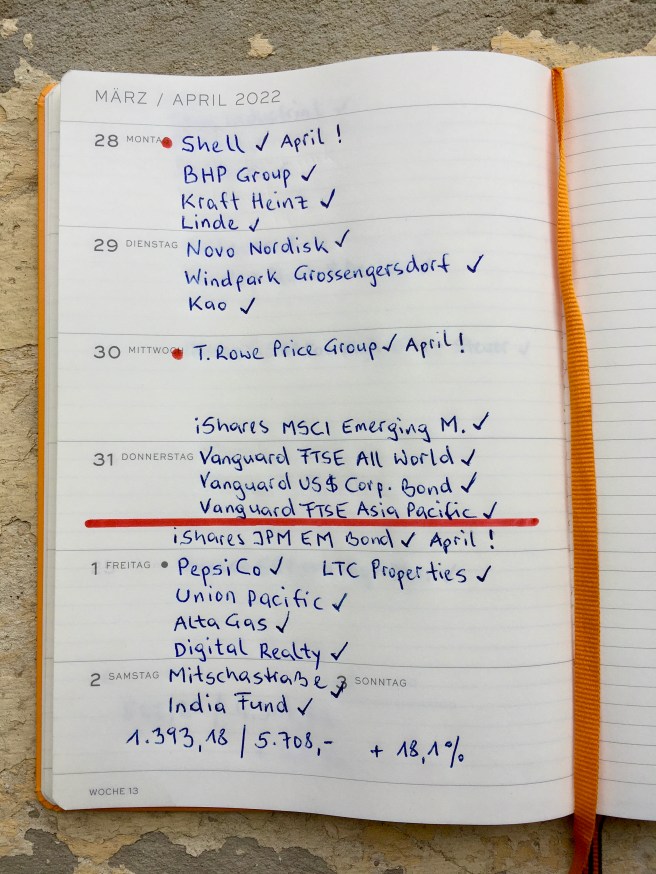 MÄRZ / APRIL 2022
28 MONTAG Shell ✓ April !
BHP Group ✓
Kraft Heinz ✓
Linde ✓
29 DIENSTAG Novo Nordisk ✓
Windpark Grossengersdorf ✓
Kao ✓
30 MITTWOCH T. Rowe Price Group ✓ April !
iShares MSCI Emerging M. ✓
31 DONNERSTAG Vanguard FTSE All World ✓
Vanguard US$ Corp. Bond ✓
Vanguard FTSE Asia Pacific ✓
iShares JPM EM Bond ✓ April !
1 FREITAG • PepsiCo ✓ LTC Properties ✓
Union Pacific ✓
AltaGas ✓
Digital Realty ✓
2 SAMSTAG Mitschastraße ✓ 3 SONNTAG
India Fund ✓
1.393,18 | 5.708,- + 18,1%
WOCHE 13